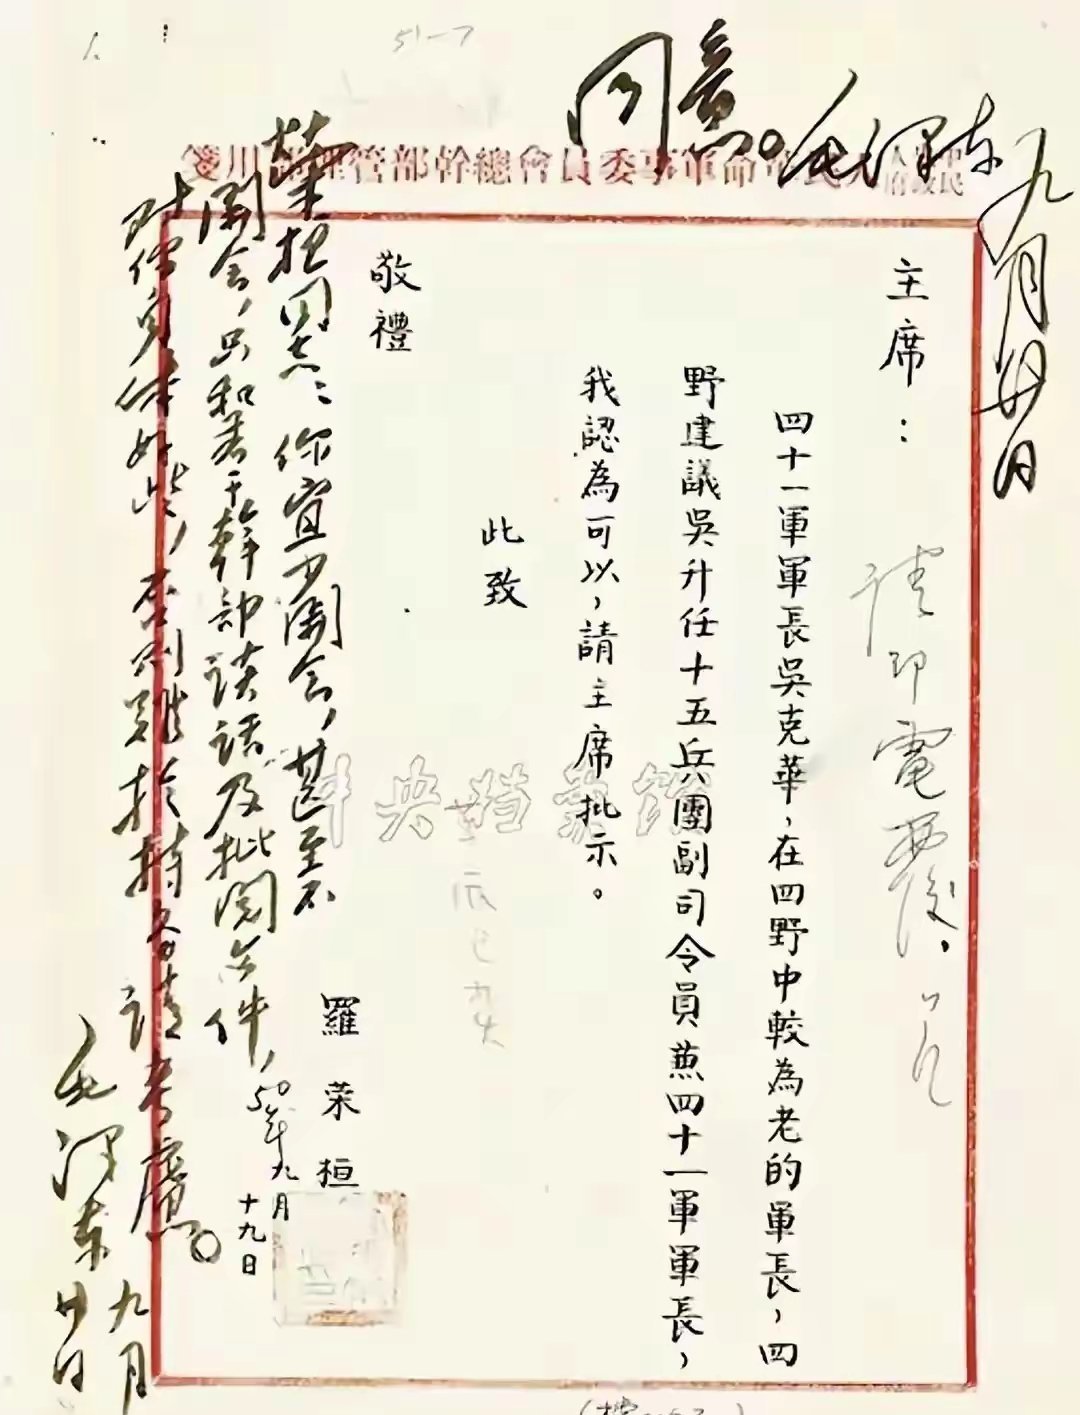 同意。毛泽东
九月廿日
中央人民政府人民革命軍事委員會總幹部管理部用箋
主席：
四十一軍軍長吳克華，在四野中較為老的軍長，四
野建議吳升任十五兵團副司令員兼四十一軍軍長，
我認為可以，請主席批示。
此致
敬禮
羅荣桓
50年九月
十九日
荣桓同志：你宜少開会，甚至不
開会，只和若干幹部談話及批閱文件，
对你身体好些，否则难於持久，請考慮。
毛泽东
九月
廿日
中央档案馆